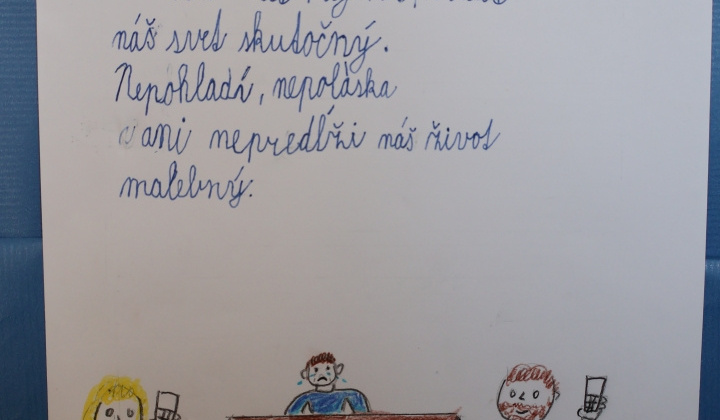 náš svet skutočný.
Nepohladí, nepoláska
ani nepredĺži náš život
malebný.